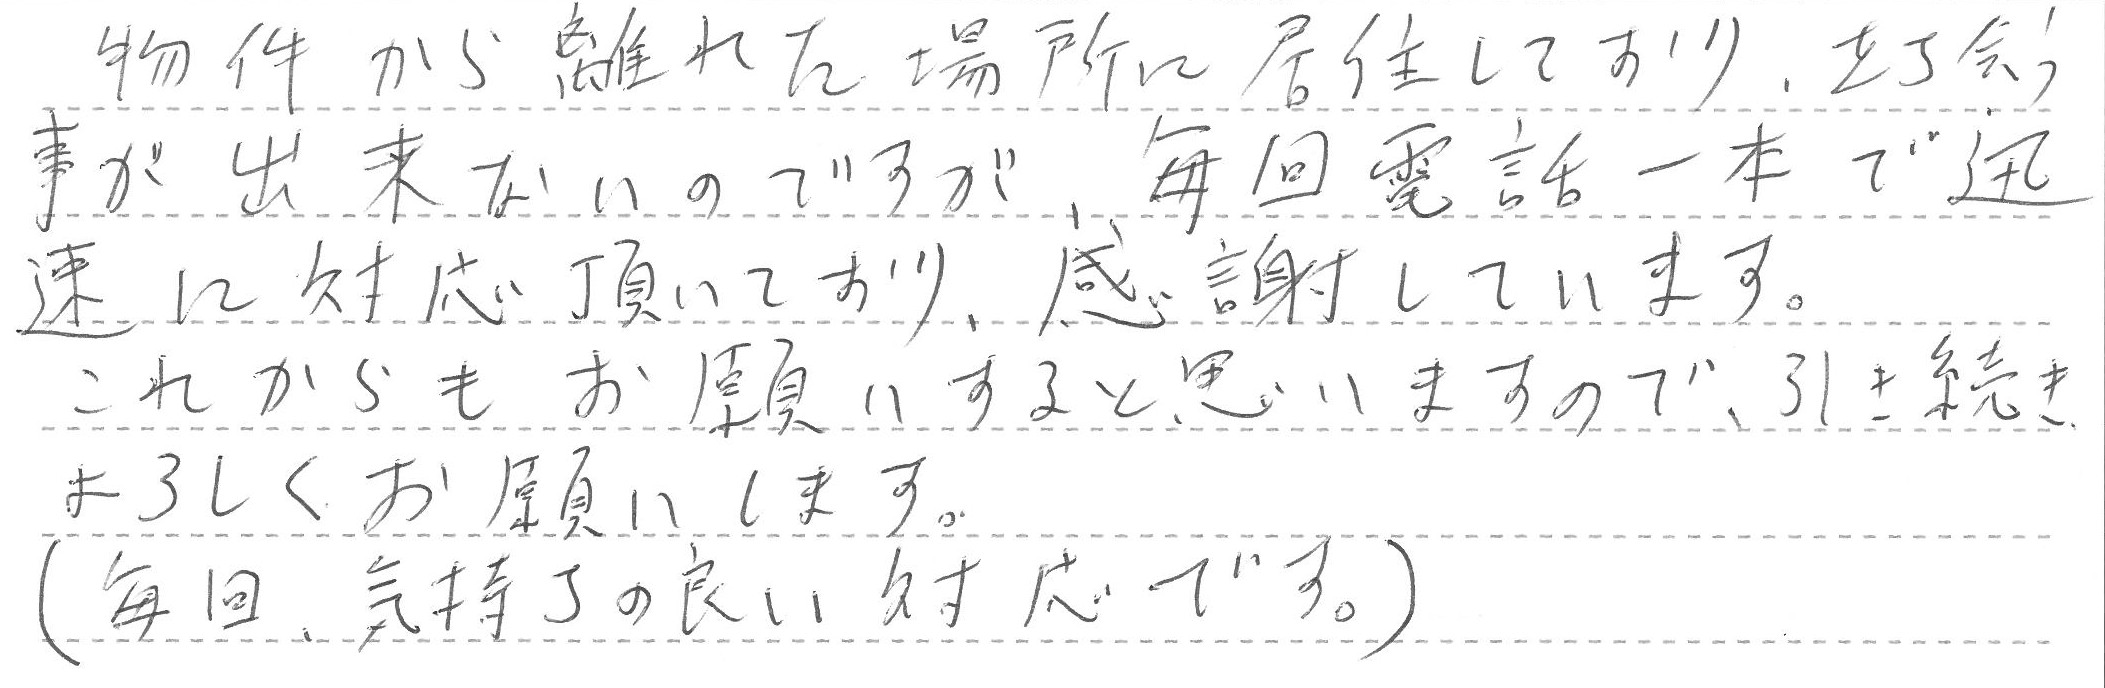 物件から離れた場所に居住しており、立ち会う
事が出来ないのですが、毎回電話一本で迅
速に対応頂いており、感謝しています。
これからもお願いすると思いますので、引き続き
よろしくお願いします。
(毎回、気持ちの良い対応です。)